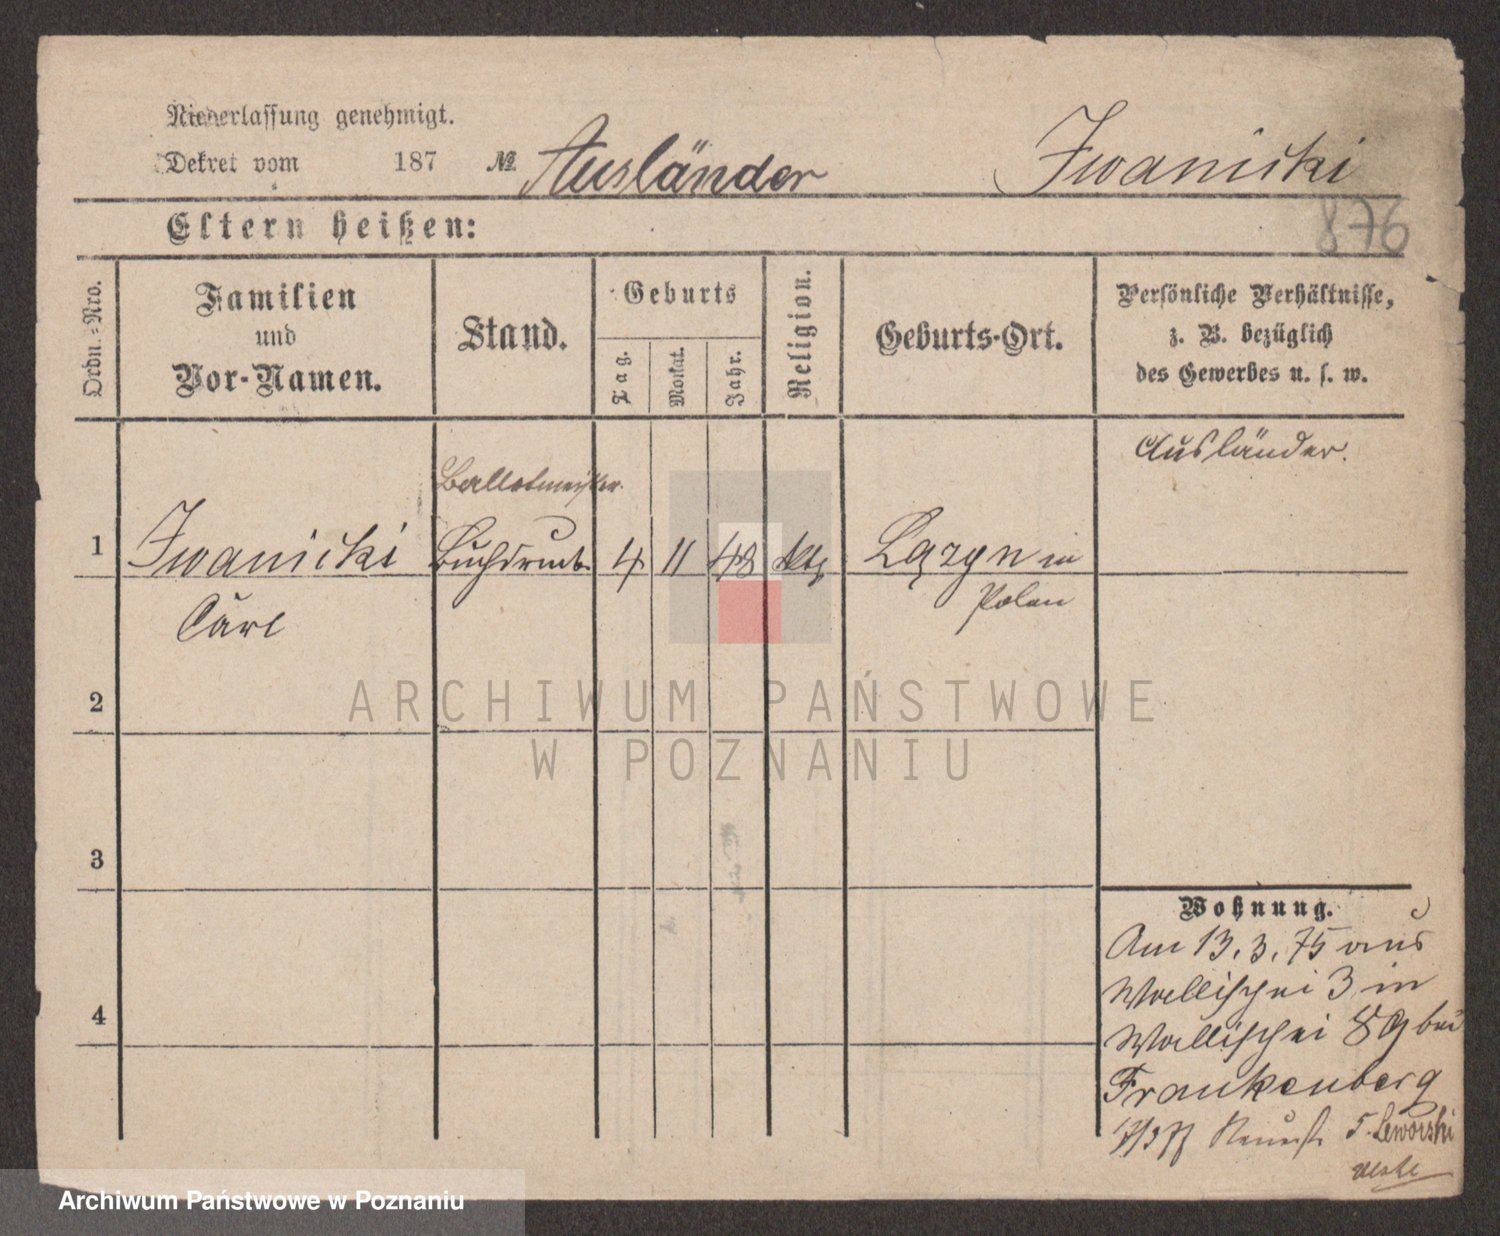 Niederlassung genehmigt.
Dekret vom 187 № Ausländer Iwanicki
876
Eltern heißen:
Ordn.-Nro.
Familien
und
Vor-Namen.
Stand.
Geburts
Tag.
Monat.
Jahr.
Religion.
Geburts-Ort.
Persönliche Verhältnisse,
z. B. bezüglich
des Gewerbes u. s. w.
Ausländer.
Balletmeister
1 Iwanicki Buchdruck 4 11 48 kth in
Polen
Carl
2
3
4
Wohnung.
Am 13.3.75 aus
Wallischei 3 in
Wallischei 89 bei
Frankenberg
5.
ARCHIWUM PAŃSTWOWE
W POZNANIU
Archiwum Państwowe w Poznaniu